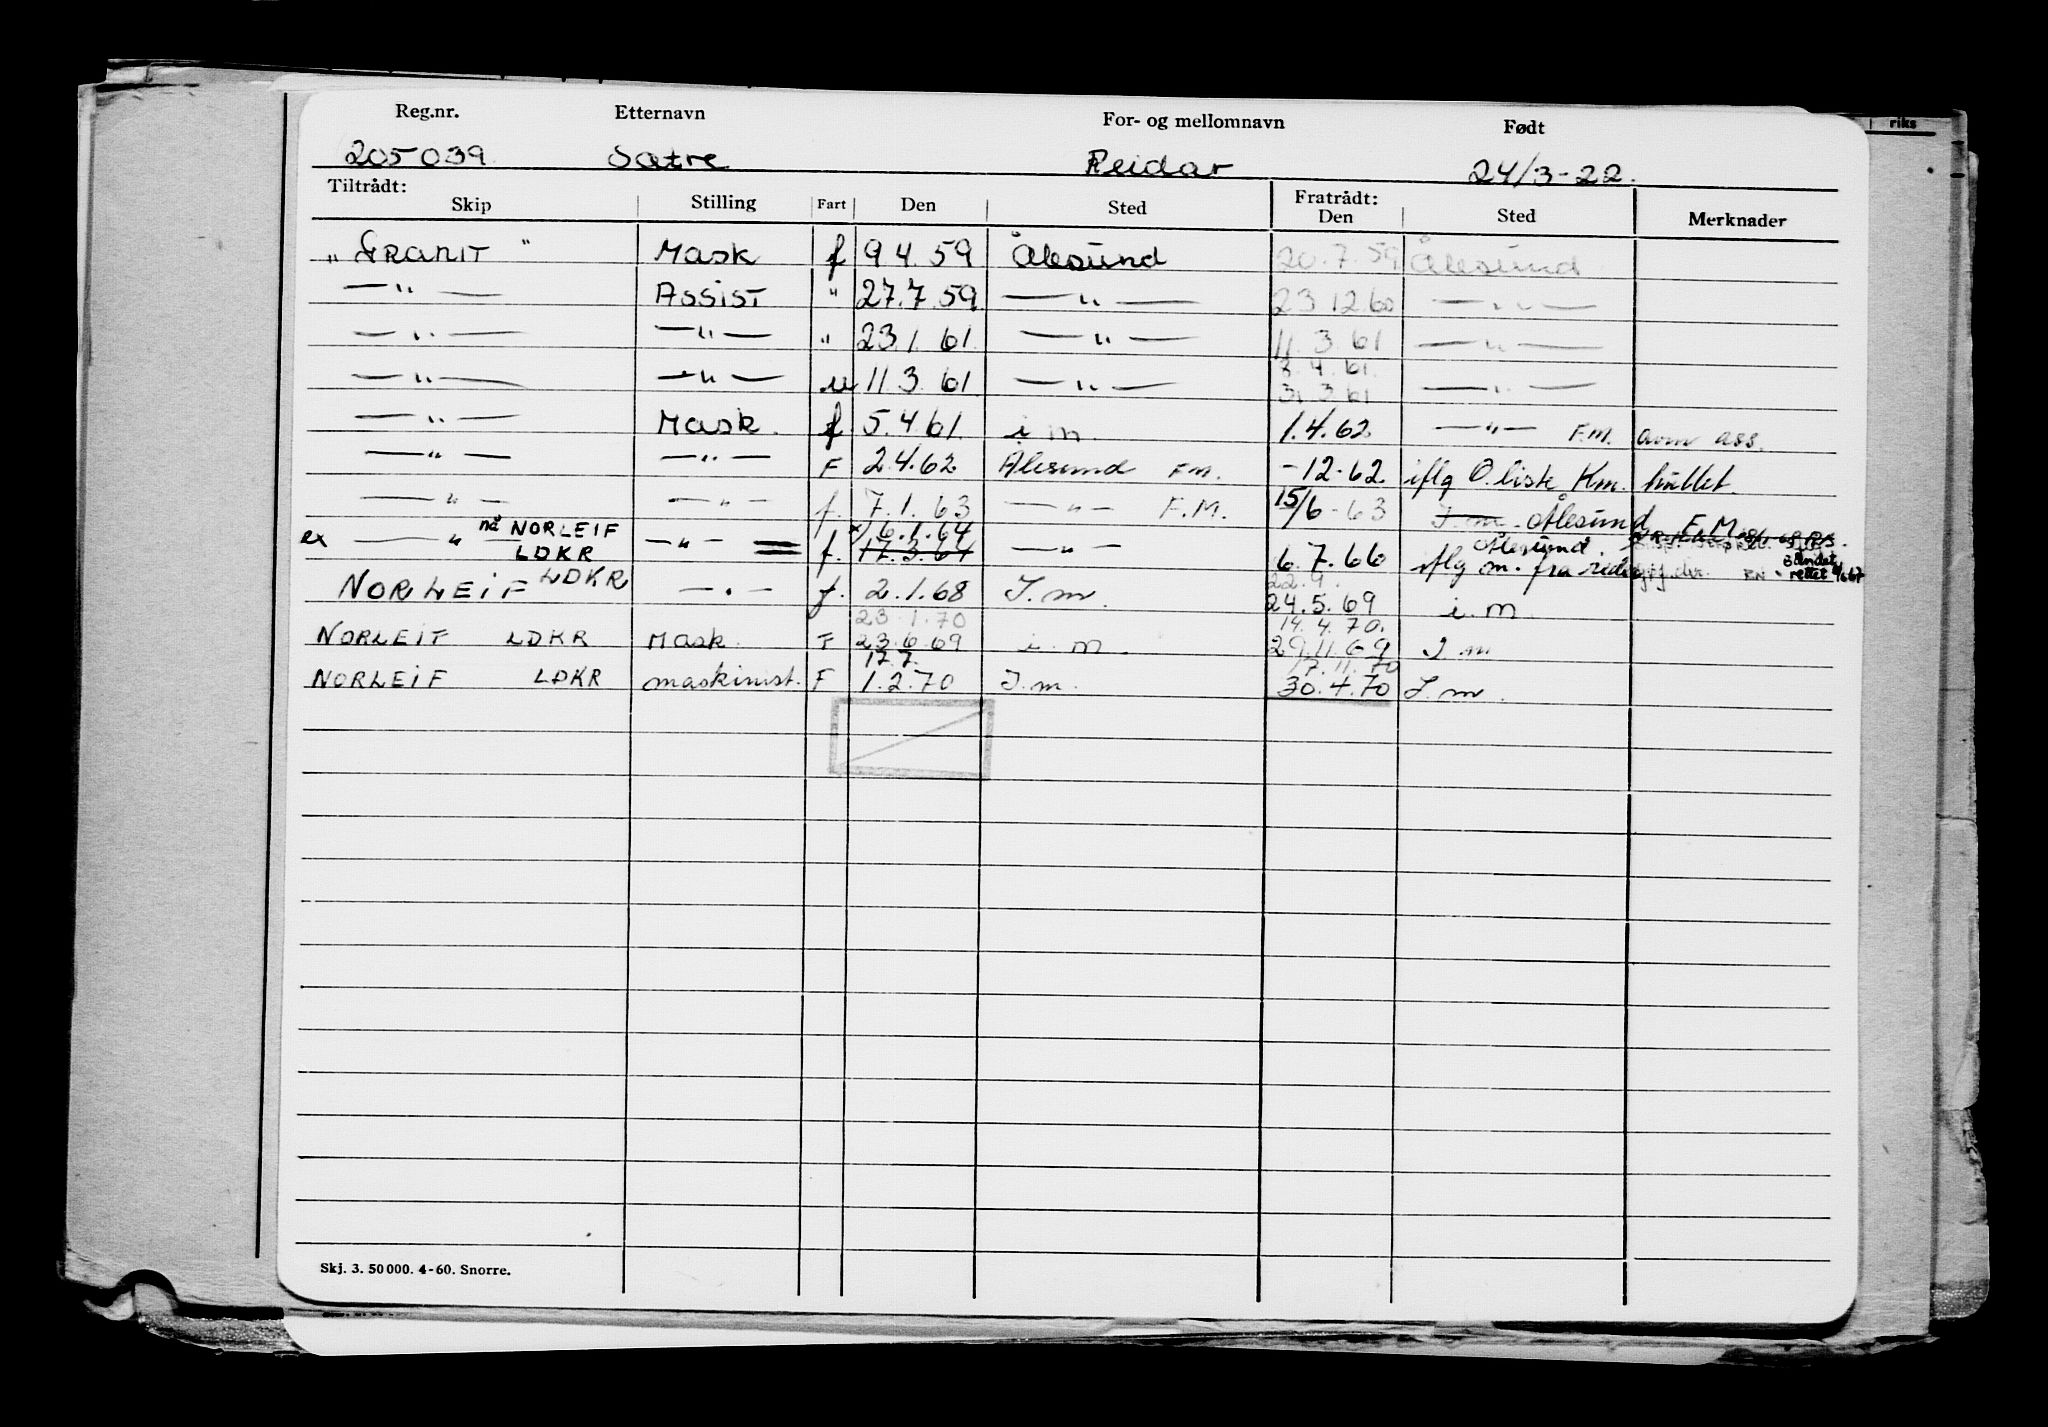 riks
Reg.nr. Etternavn For- og mellomnavn Født
205039 Sætre Reidar 24/3-22.
Tiltrådt: Fratrådt:
Skip Stilling Fart Den Sted Den Sted Merknader
„ GRANIT " Mask f 9.4.59 Ålesund 20.7.59 Ålesund
— " — ASSIST " 27.7.59 — " — 23.12.60 — " —
— " — — " — " 23.1.61. — " — 11.3.61 — " —
8.4.61.
— " — — " — u 11.3.61 — " — 31.3.61 — " —
— " — Mask. f 5.4.61. i.m. 1.4.62 — " — F.M. avm ass.
— " — — " — F 2.4.62 Ålesund F.M. -12-62. iflg O.liste Km. hullet.
— " — — " — f. 7.1.63 — " — F.M. 15/6-63 I.m. Ålesund F.M.
nå NORLEIF x) 6.1.64 Ålesund.
ex — " — LDKR — " — = f. 17.3.64 — " — 6.7.66 iflg m. fra rederi
rettet
22.9.
NORLEIF LDKR — " — f. 2.1.68 I.m. 24.5.69 i.m.
23.1.70 14.4.70.
NORLEIF LDKR Mask. F 23.6.69 i.m. 29.11.69 I.m
17.7. 17.11.70
NORLEIF LDKR maskinist. F 1.2.70 I.m. 30.4.70 I.m.
Skj. 3. 50 000. 4-60. Snorre.